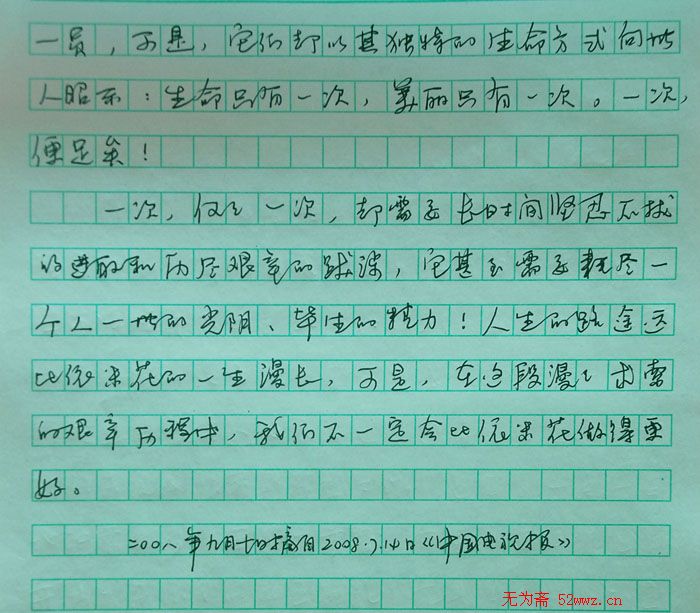 一员，可是，它们却以其独特的生命方式向世
人昭示：生命只有一次，美丽只有一次。一次，
便足矣！
一次，仅仅一次，却需要长时间坚忍不拔
的进取和历尽艰辛的跋涉，它甚至需要耗尽一
个人一世的光阴、毕生的精力！人生的路途远
比依米花的一生漫长，可是，在这段漫漫求索
的艰辛历程中，我们不一定会比依米花做得更
好。
二〇〇八年九月十日摘自2008.7.14日《中国电视报》
无为斋 52wwz.cn